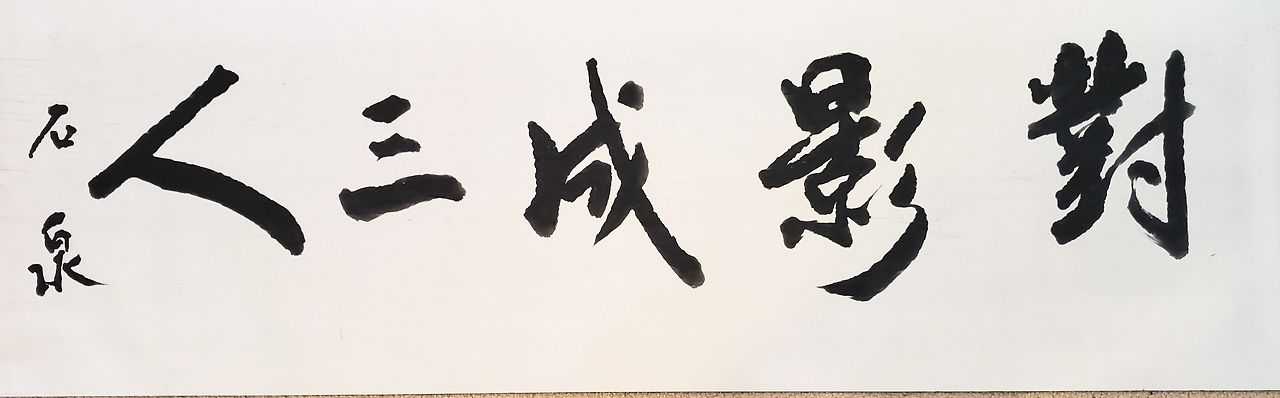 對影成三人
石泉